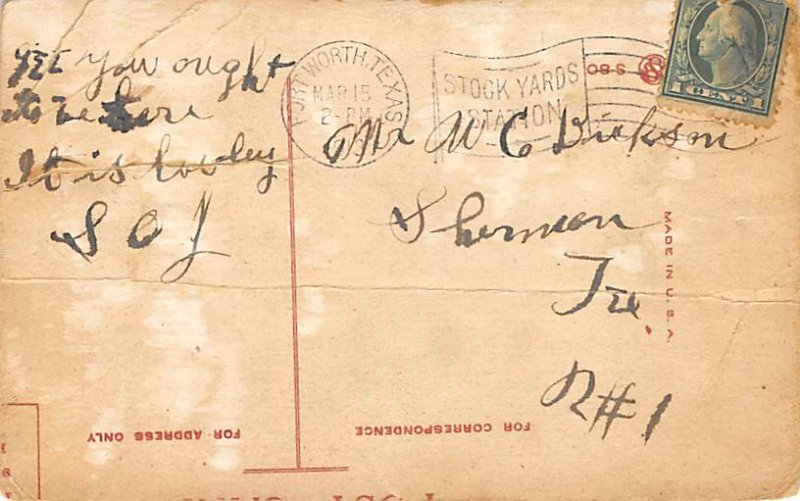 yet you ought
to be here
It is lovley
S C J
FORT WORTH, TEXAS
MAR 15
2-PM
STOCK YARDS
STATION
1 CENT 1
Mr W C Dickson
Sherman
Tex.
R#1
S-80
MADE IN U. S. A.
FOR ADDRESS ONLY
FOR CORRESPONDENCE
POST